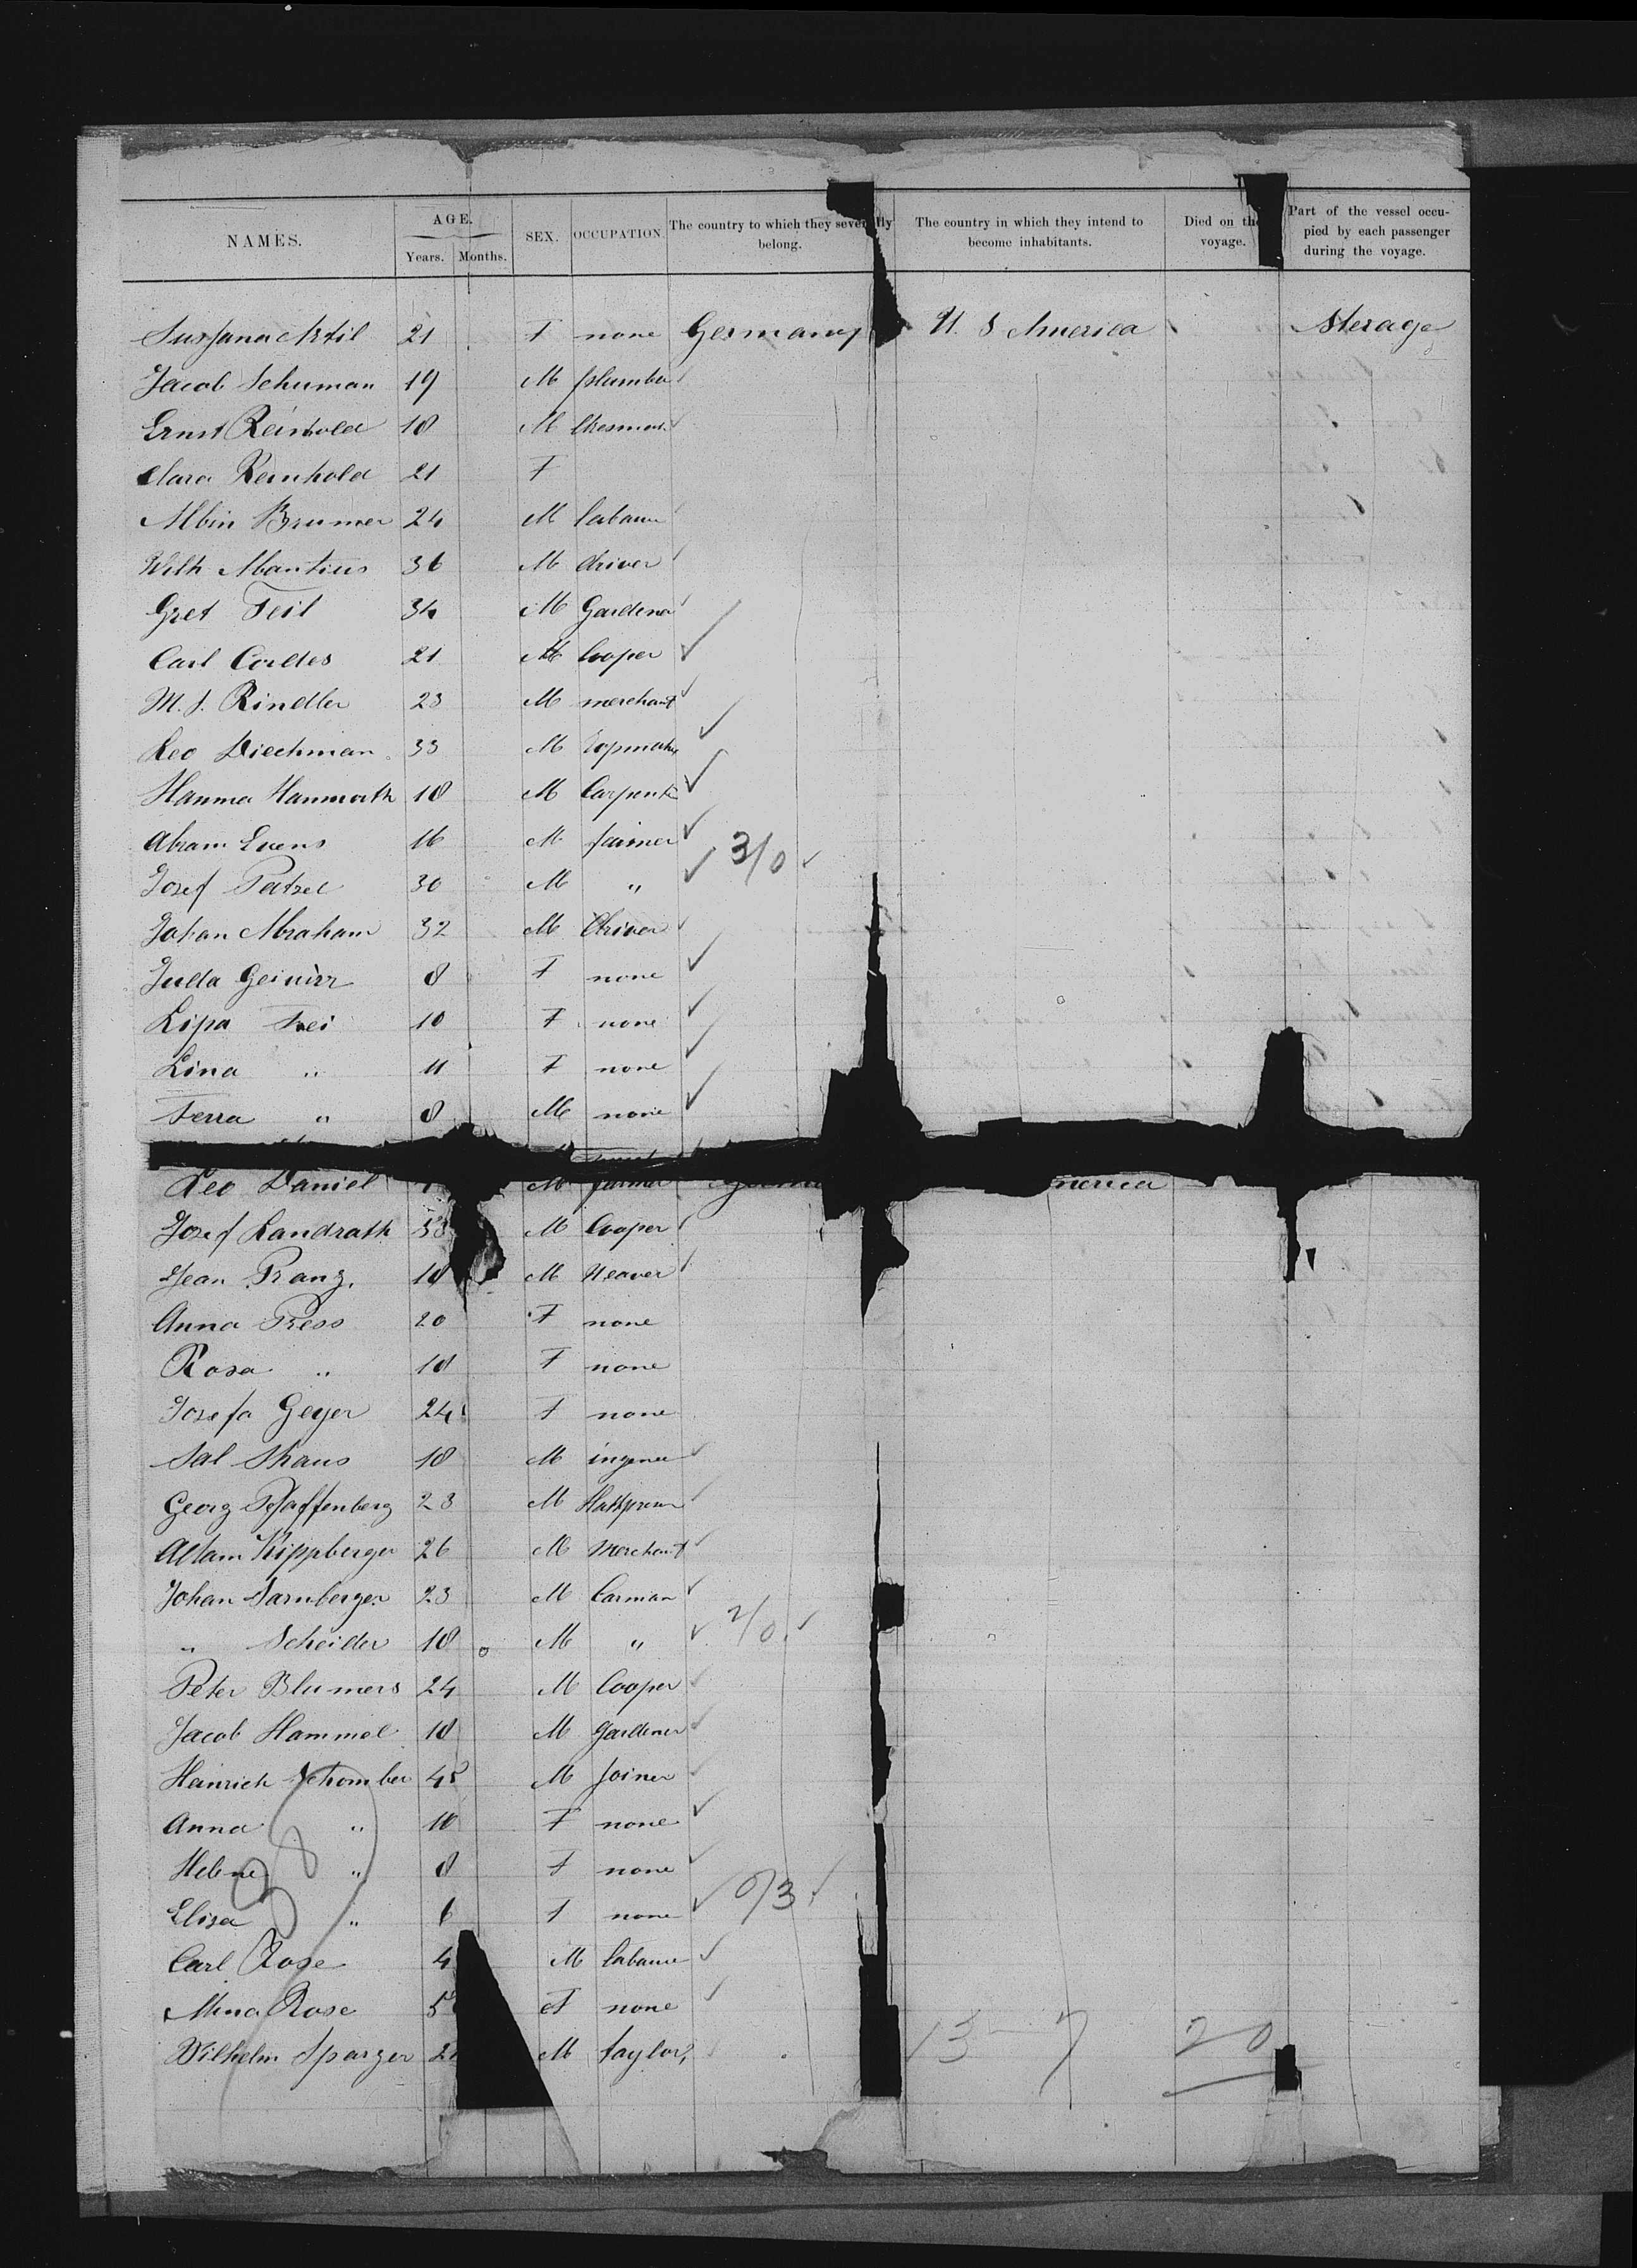 NAMES. AGE. Years. Months. SEX. OCCUPATION. The country to which they severally belong. The country in which they intend to become inhabitants. Died on the voyage. Part of the vessel occupied by each passenger during the voyage.
21 F none Germany U. S America Sterage
Jacob Schuman 19 M plumber
Ernst Reinhold 18 M
Clara Reinhold 21 F
Albin Brumer 24 M labaur
Wilh Mantius 36 M driver
Gret Feil 34 M Gardener
Carl Cordes 21 M Cooper
M. J. Rindler 23 M merchant
Leo Diechman 33 M
Hanna Hanmorth 18 M Carpente
Abram Evens 16 M farmer
Josef 30 M " 3/0
Johan Abraham 32 M Driver
Julla 8 F none
Lipa 10 F none
Lina " 11 F none
" 8 M none
Leo Daniel M farmer
Josef Landrath M Cooper
Jean Franz. 18 M Weaver
Anna Press 20 F none
Rosa " 18 F none
Josefa Geyer 24 F none
Sal 18 M
Georg Pfaffenberg 23 M
Adam Kippberger 26 M Merchant
Johan Sarnberger 23 M Carman
" Scheider 18 M " 2/0
Peter Blumers 24 M Cooper
Jacob Hammel 18 M Gardener
Heinrich Schomber 45 M Joiner
Anna " 10 F none
Helene " 8 F none
Elisa " 6 F none 0/3
Carl Rose 4 M labaur
Mina Rose 5 F none
Wilhelm Sparger 2 M taylor
13 7 20